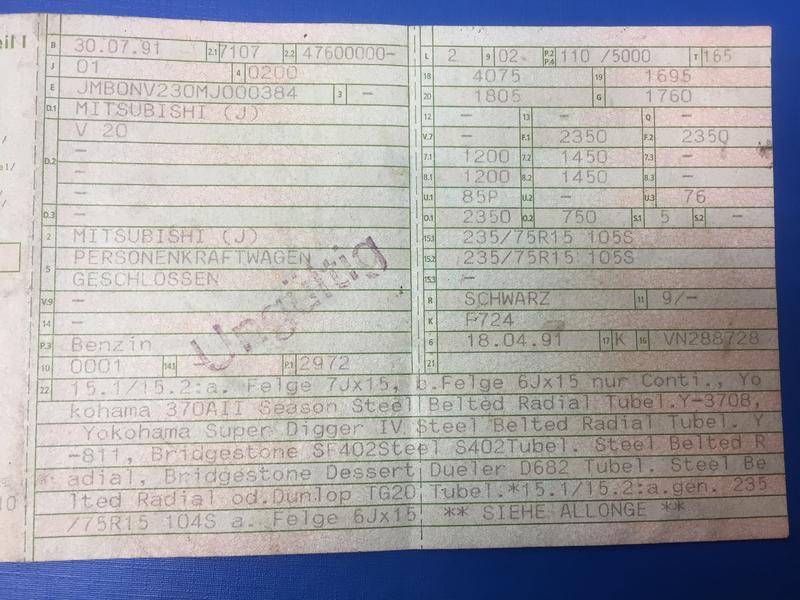 eil I
B 30.07.91 2.1 7107 2.2 47600000-
J 01 4 0200
E JMB0NV230MJ000384 3 -
D.1 MITSUBISHI (J)
D.2 V 20
-
-
-
D.3 -
2 MITSUBISHI (J)
5 PERSONENKRAFTWAGEN
GESCHLOSSEN
V.9 -
14 -
P.3 Benzin
10 0001 14.1 P.1 2972
Ungültig
L 2 9 02 P.2 P.4 110 /5000 T 165
18 4075 19 1695
20 1805 G 1760
12 - 13 - Q -
V.7 - F.1 2350 F.2 2350
7.1 1200 7.2 1450 7.3 -
8.1 1200 8.2 1450 8.3 -
U.1 85P U.2 - U.3 76
O.1 2350 O.2 750 S.1 5 S.2 -
15.1 235/75R15 105S
15.2 235/75R15 105S
15.3 -
R SCHWARZ 11 9/-
K F724
6 18.04.91 17 K 16 VN288728
21
22 15.1/15.2:a. Felge 7Jx15, b.Felge 6Jx15 nur Conti., Yo
kohama 370AII Season Steel Belted Radial Tubel.Y-370B,
Yokohama Super Digger IV Steel Belted Radial Tubel. Y
-811, Bridgestone SF402Steel S402Tubel. Steel Belted R
adial, Bridgestone Dessert Dueler D682 Tubel. Steel Be
lted Radial od.Dunlop TG20 Tubel.*15.1/15.2:a.gen. 235
/75R15 104S a. Felge 6Jx15 ** SIEHE ALLONGE **